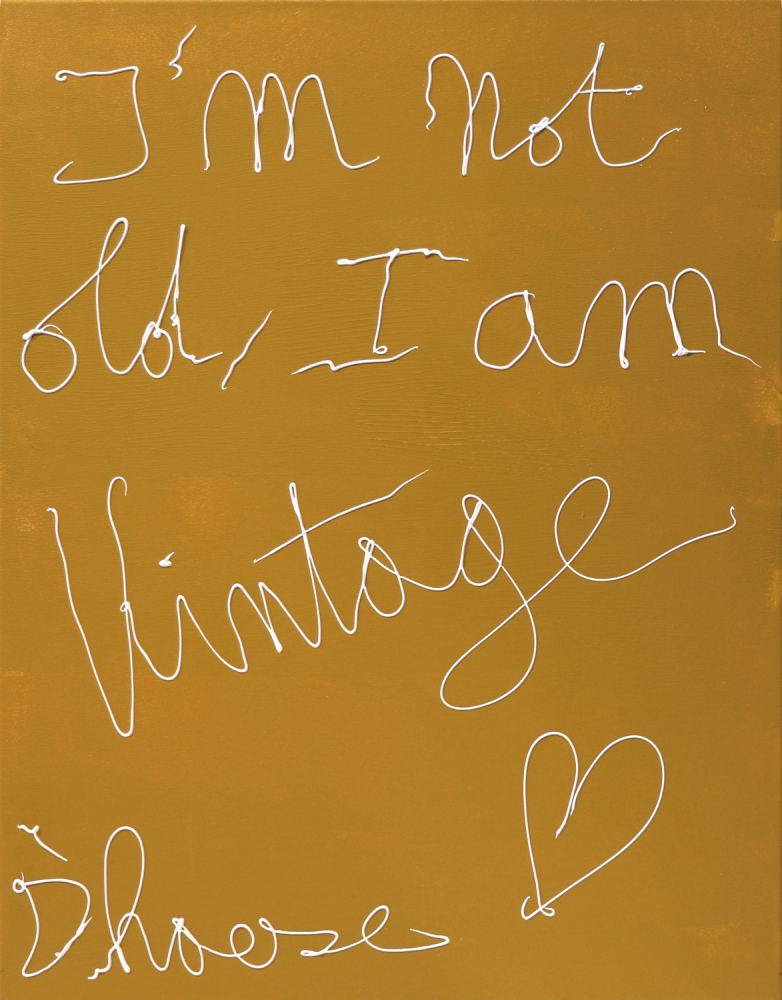 I'm not
old, I am
Vintage
D'hoose